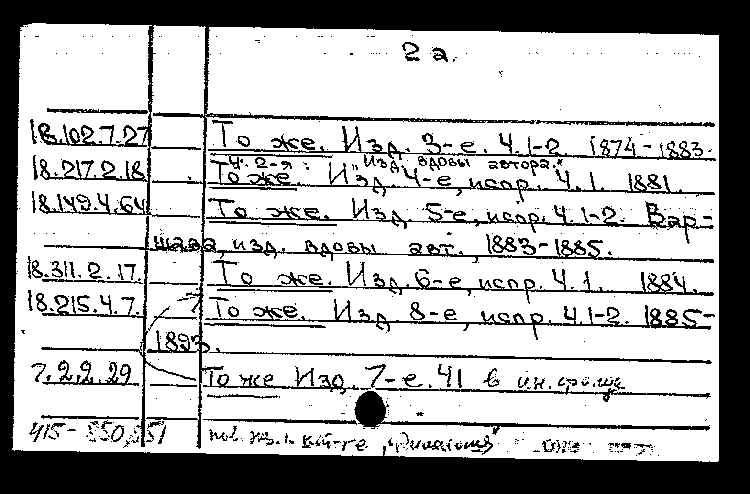 2 а.
18.102.7.27 То же. Изд. 3-е. Ч.1-2. 1874-1883.
Ч. 2-я: "Изд. вдовы автора."
18.217.2.18 То же. Изд. 4-е, испр. Ч.1. 1881.
18.149.4.64 То же. Изд. 5-е, испр. Ч.1-2. Вар-
шава, изд. вдовы авт., 1883-1885.
18.311.2.17. То же. Изд. 6-е, испр. Ч.1. 1884.
18.215.4.7. То же. Изд. 8-е, испр. Ч.1-2. 1885-
1893.
7.2.2.29 То же Изд. 7-е. Ч1 в
415-